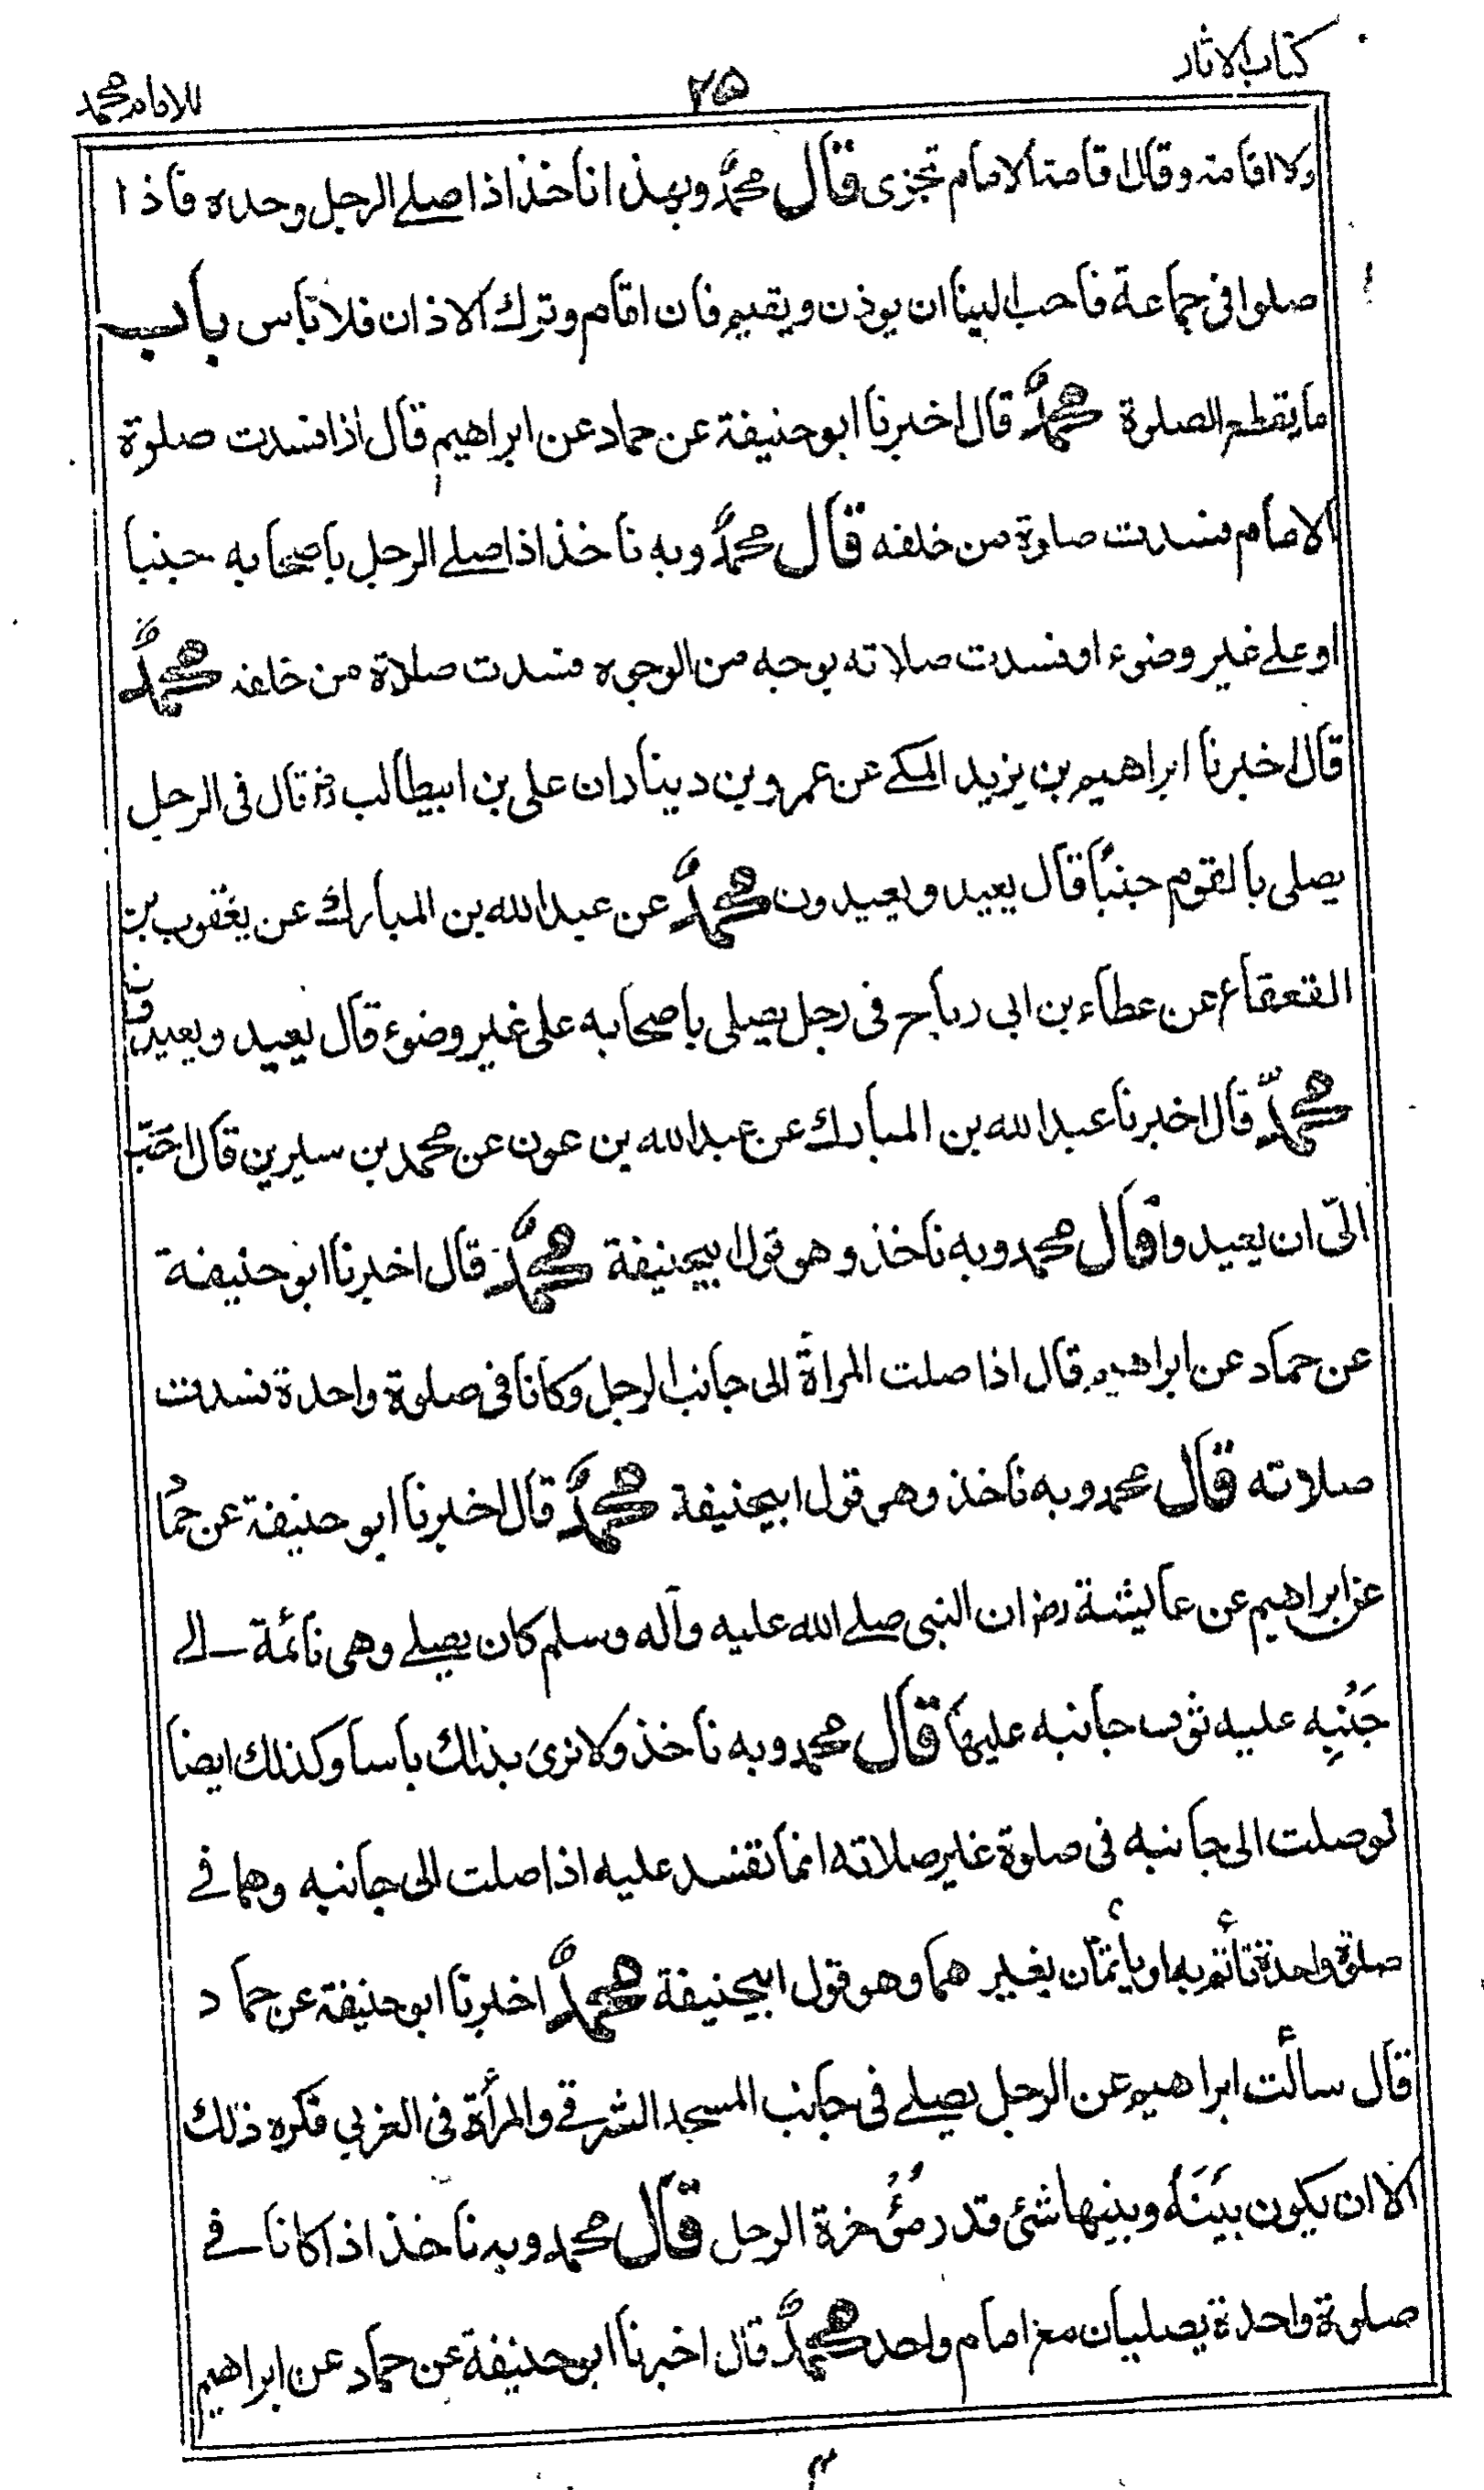 كتاب الاثار ٢٥ للامام محمد
ولا اقامته وقال اقامة الامام تجزى قال محمدؒ وبهذا ناخذ اذا صلے الرجل وحده فاذا
صلوا فى جماعة فاحب الينا ان يوذن ويقيم فان اقام وترك الاذان فلا باس باب
ما يقطع الصلوة محمدؒ قال اخبرنا ابو حنيفة عن حماد عن ابراهيم قال اذا فسدت صلوة
الامام فسدت صلوة من خلفه قال محمدؒ وبه ناخذ اذا صلے الرجل باصحابه جنبا
او علے غير وضوء او فسدت صلاته بوجه من الوجوه فسدت صلاة من خلفه محمدؒ
قال اخبرنا ابراهيم بن يزيد المكے عن عمرو بن دينار ان على بن ابيطالب رض قال فى الرجل
يصلى بالقوم جنبًا قال يعيد ويعيدون محمدؒ عن عبد الله بن المبارك عن يعقوب بن
القعقاع عن عطاء بن ابى رباح فى رجل يصلى باصحابه على غير وضوء قال يعيد ويعيدون
محمدؒ قال اخبرنا عبد الله بن المبارك عن عبد الله بن عون عن محمد بن سيرين قال احَبّ
الىّ ان يعيدوا قال محمد وبه ناخذ وهو قول ابيحنيفة محمدؒ قال اخبرنا ابو حنيفة
عن حماد عن ابراهيم قال اذا صلت المرأة الى جانب الرجل وكانا فى صلوة واحدة فسدت
صلاته قال محمد وبه ناخذ وهو قول ابيحنيفة محمدؒ قال اخبرنا ابو حنيفة عن حماد
عن ابراهيم عن عايشة رض ان النبى صلے الله عليه وآله وسلم كان يصلے وهى نائمة الے
جَنْبِه عليه ثوب جانبه عليها قال محمد وبه ناخذ ولا نرى بذلك باسا وكذلك ايضا
لو صلت الى جانبه فى صلوة غير صلاته انما تفسد عليه اذا صلت الى جانبه وهما فے
صلوة واحدة تأتم به او يأتمان بغير هما وهو قول ابيحنيفة محمدؒ اخبرنا ابو حنيفة عن حماد
قال سألت ابراهيم عن الرجل يصلے فى جانب المسجد الشرقے والمرأة فى الغربي فكره ذلك
الا ان يكون بَيْنَهُ وبينها شئ قدر مُؤْخرة الرحل قال محمد وبه ناخذ اذا كانا فے
صلوة واحدة يصليان مع امام واحد محمدؒ قال اخبرنا ابو حنيفة عن حماد عن ابراهيم